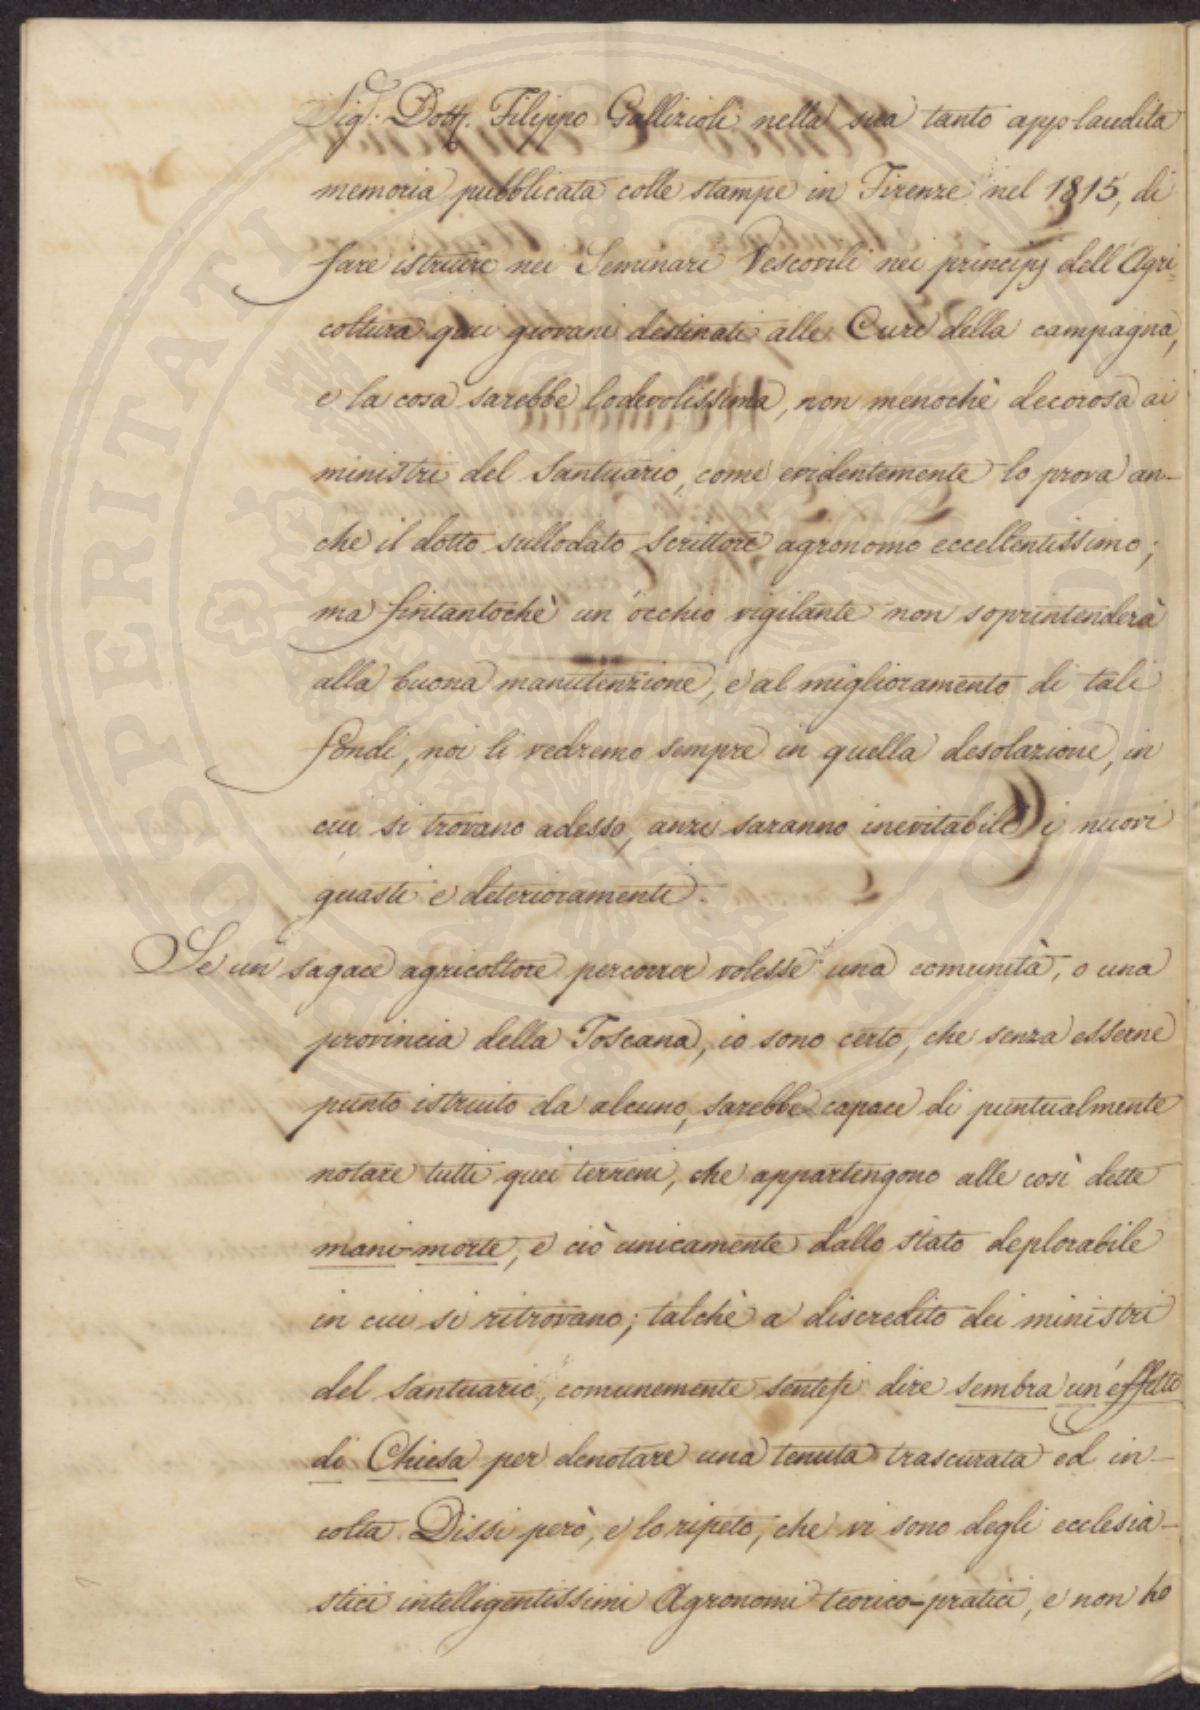 Sig: Dott. Filippo Gallizioli nella sua tanto applaudita
memoria pubblicata colle stampe in Firenze nel 1815, di
fare istruire nei Seminari Vescovili nei principj dell'Agri=
coltura quei giovani destinati alle Cure della campagna,
e la cosa sarebbe lodevolissima, non menochè decorosa ai
ministri del Santuario, come evidentemente lo prova an-
che il dotto sullodato scrittore agronomo eccellentissimo;
ma fintantochè un'occhio vigilante non soprintenderà
alla buona manutenzione, e al miglioramento di tali
fondi, noi li vedremo sempre in quella desolazione, in
cui si trovano adesso, anzi saranno inevitabili i nuovi
guasti e deterioramenti.
Se un sagace agricoltore percorrer volesse una comunità, o una
provincia della Toscana, io sono certo, che senza esserne
punto istruito da alcuno, sarebbe capace di puntualmente
notare tutti quei terreni, che appartengono alle così dette
mani-morte, e ciò unicamente dallo stato deplorabile
in cui si ritrovano; talchè a discredito dei ministri
del santuario, comunemente sentesi dire sembra un'effetto
di Chiesa per denotare una tenuta trascurata ed in-
colta. Dissi però, e lo ripeto, che vi sono degli ecclesia-
stici intelligentissimi Agronomi teorico-pratici, e non ho
PROSPERITATI